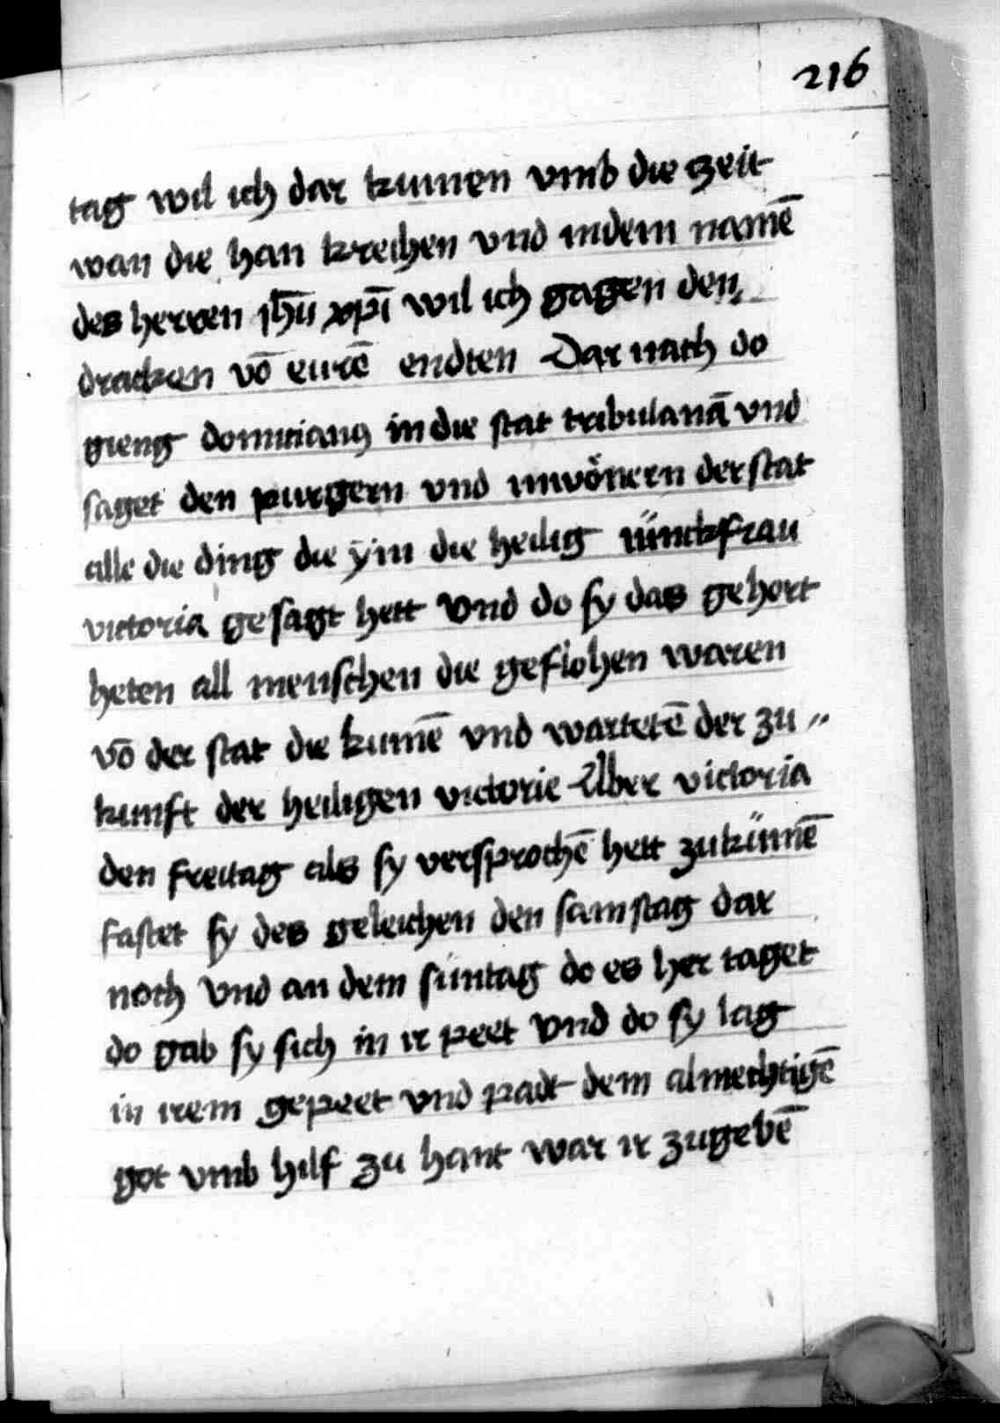 216
tag wil ich dar kumen vmb die zeit
wan die han kreihen vnd in dem namē
des herren ih̄u xp̄i wil ich gagen den
dracken vō eurē endten Dar nach do
gieng domicianus in die stat tribulanā vnd
saget den purgern vnd inwönern der stat
alle die ding die ÿm die heilig iünckfrau
victoria gesagt hett Vnd do sy das gehort
heten all menschen die geflohen waren
vō der stat die kumē vnd wartetē der zu〃
kunft der heiligen victorie Aber victoria
den freitag als sy versprochē hett zu kümē
fastet sy des geleichen den samstag dar
noch Vnd an dem süntag do es her taget
do gab sy sich in ir peet Vnd do sy lag
in irem gepeet vnd padt dem almechtigē
got vmb hilf zu hant war ir zu gebē